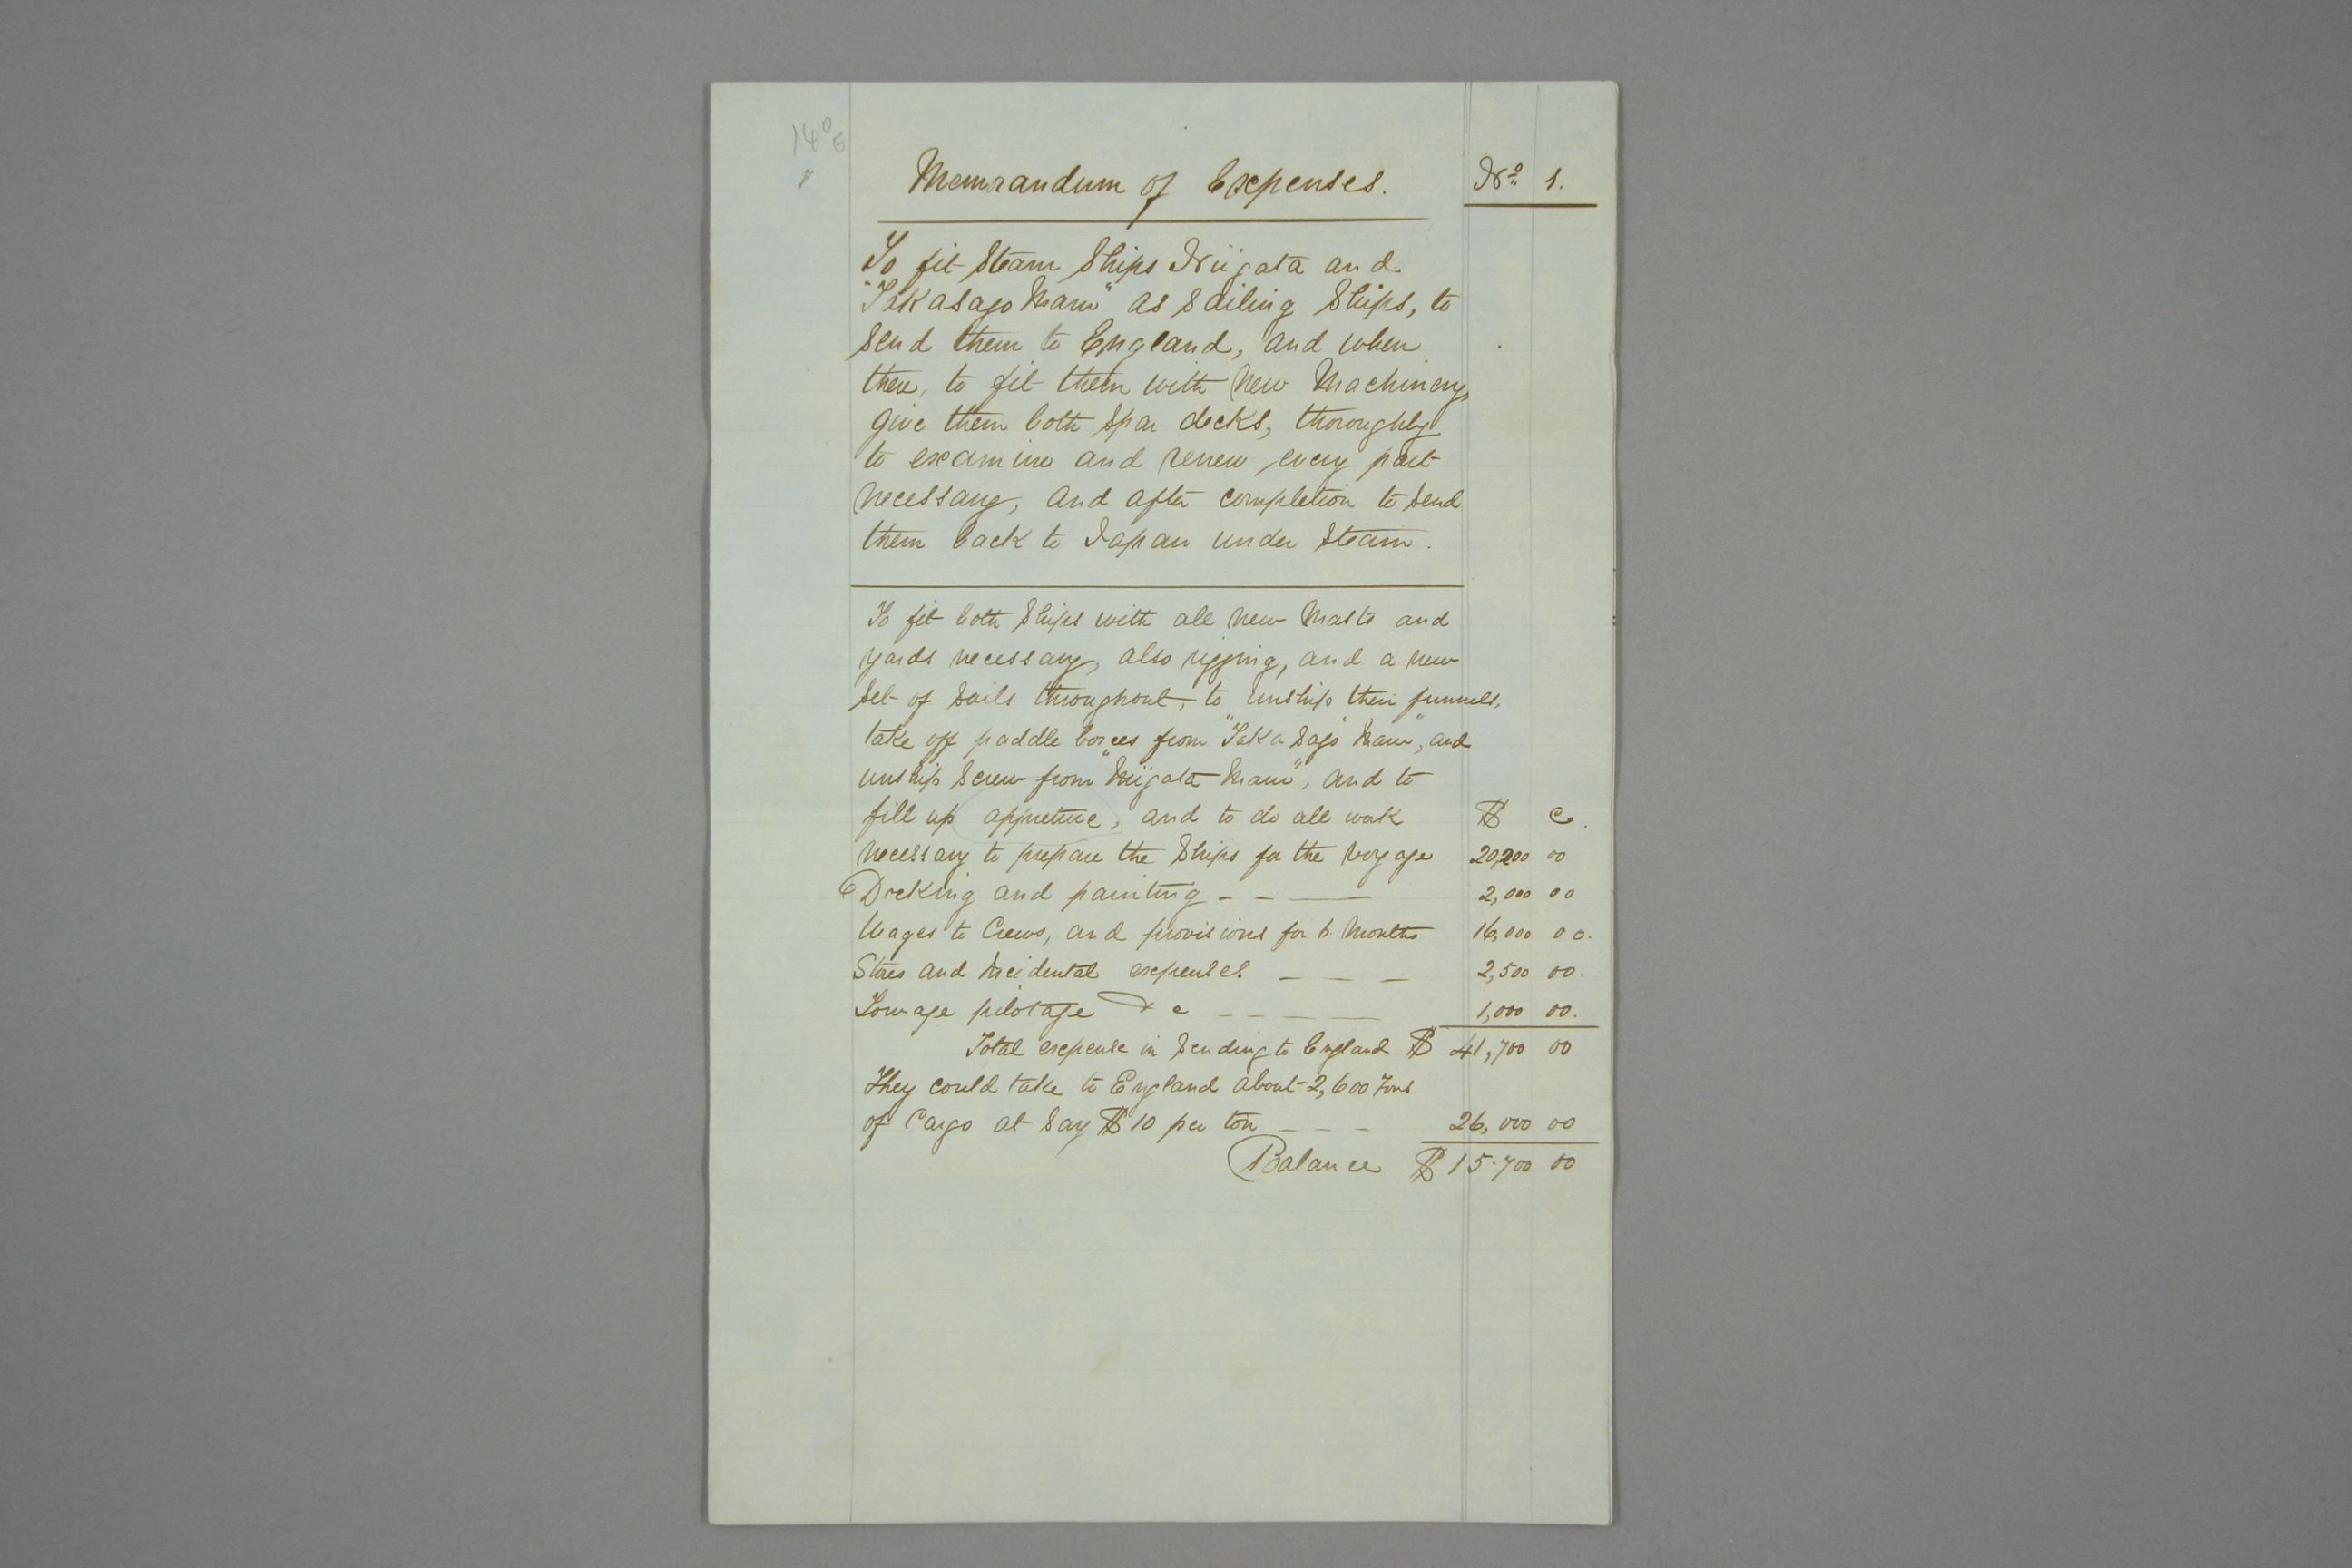 140
E
Memorandum of Expenses.
No. 1.
To fit Steam Ships Niigata and
"Takasago Maru" as Sailing Ships, to
Send them to England, and when
there, to fit them with New Machinery,
give them both Spar decks, thoroughly
to examine and renew every part
necessary, and after completion to send
them back to Japan under Steam.
To fit both Ships with all new Masts and
yards necessary, also rigging, and a new
Set of Sails throughout, to unship their funnels,
take off paddle boxes from "Takasago Maru", and
unship Screw from "Niigata Maru", and to
fill up appreture, and to do all work $ c.
necessary to prepare the Ships for the Voyage 20,200 00
Docking and painting - - — 2,000 00
Wages to Crews, and provisions for 6 Months 16,000 00.
Stores and Incidental expenses — — — 2,500 00.
Towage pilotage & c - - — — 1,000 00.
Total expense in Sending to England $ 41,700 00
They could take to England about 2,600 Tons
of Cargo at Say $10 per ton - - - 26,000 00
Balance $ 15.700 00